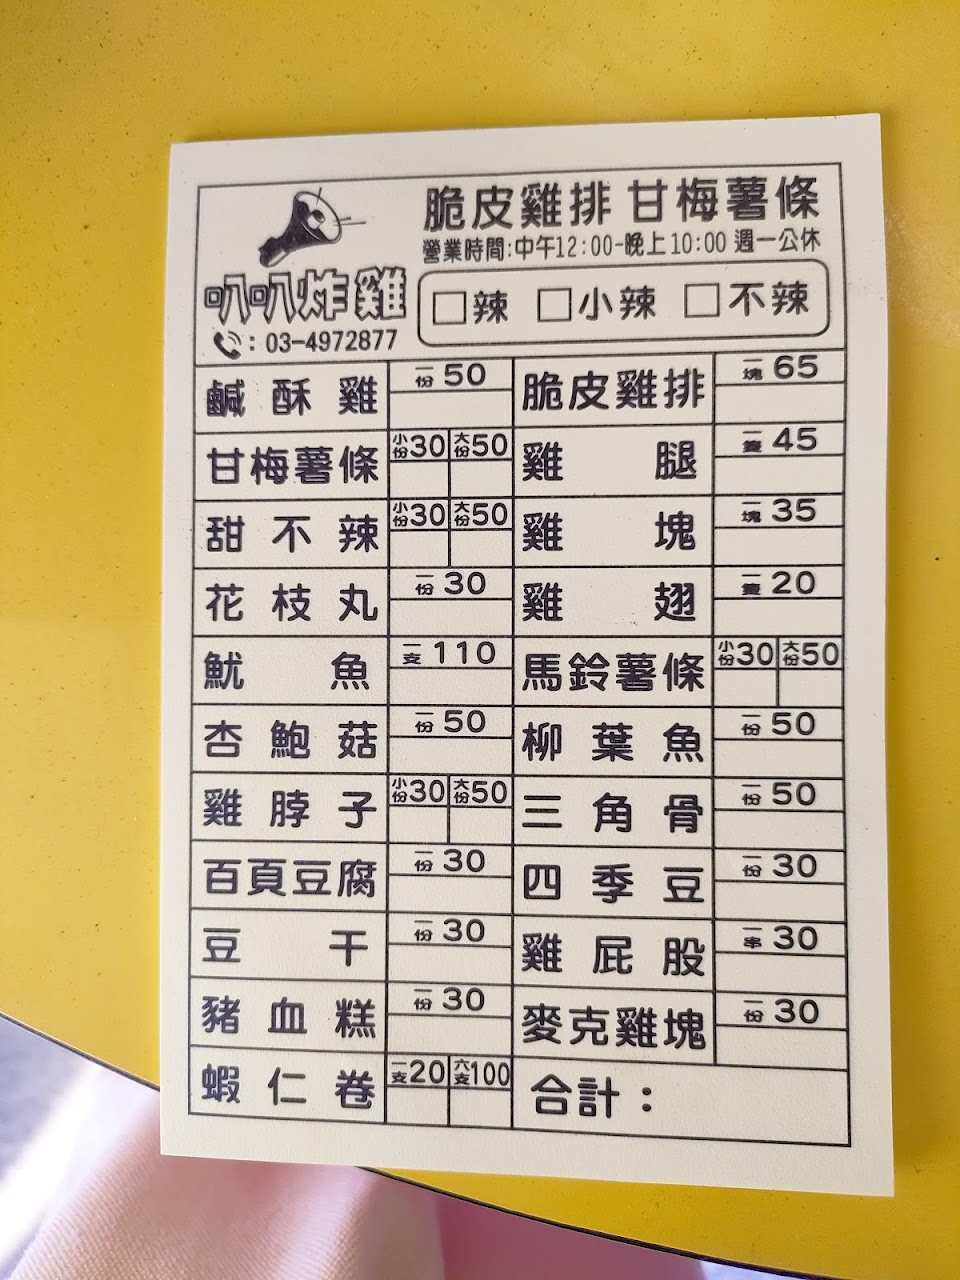 脆皮雞排 甘梅薯條
營業時間:中午12:00-晚上10:00 週一公休
叭叭炸雞
: 03-4972877
□辣 □小辣 □不辣
鹹酥雞 一份50
甘梅薯條 小份30 大份50
甜不辣 小份30 大份50
花枝丸 一份30
魷魚 一支110
杏鮑菇 一份50
雞脖子 小份30 大份50
百頁豆腐 一份30
豆干 一份30
豬血糕 一份30
蝦仁卷 一支20 六支100
脆皮雞排 一塊65
雞腿 一隻45
雞塊 一塊35
雞翅 一隻20
馬鈴薯條 小份30 大份50
柳葉魚 一份50
三角骨 一份50
四季豆 一份30
雞屁股 一串30
麥克雞塊 一份30
合計：